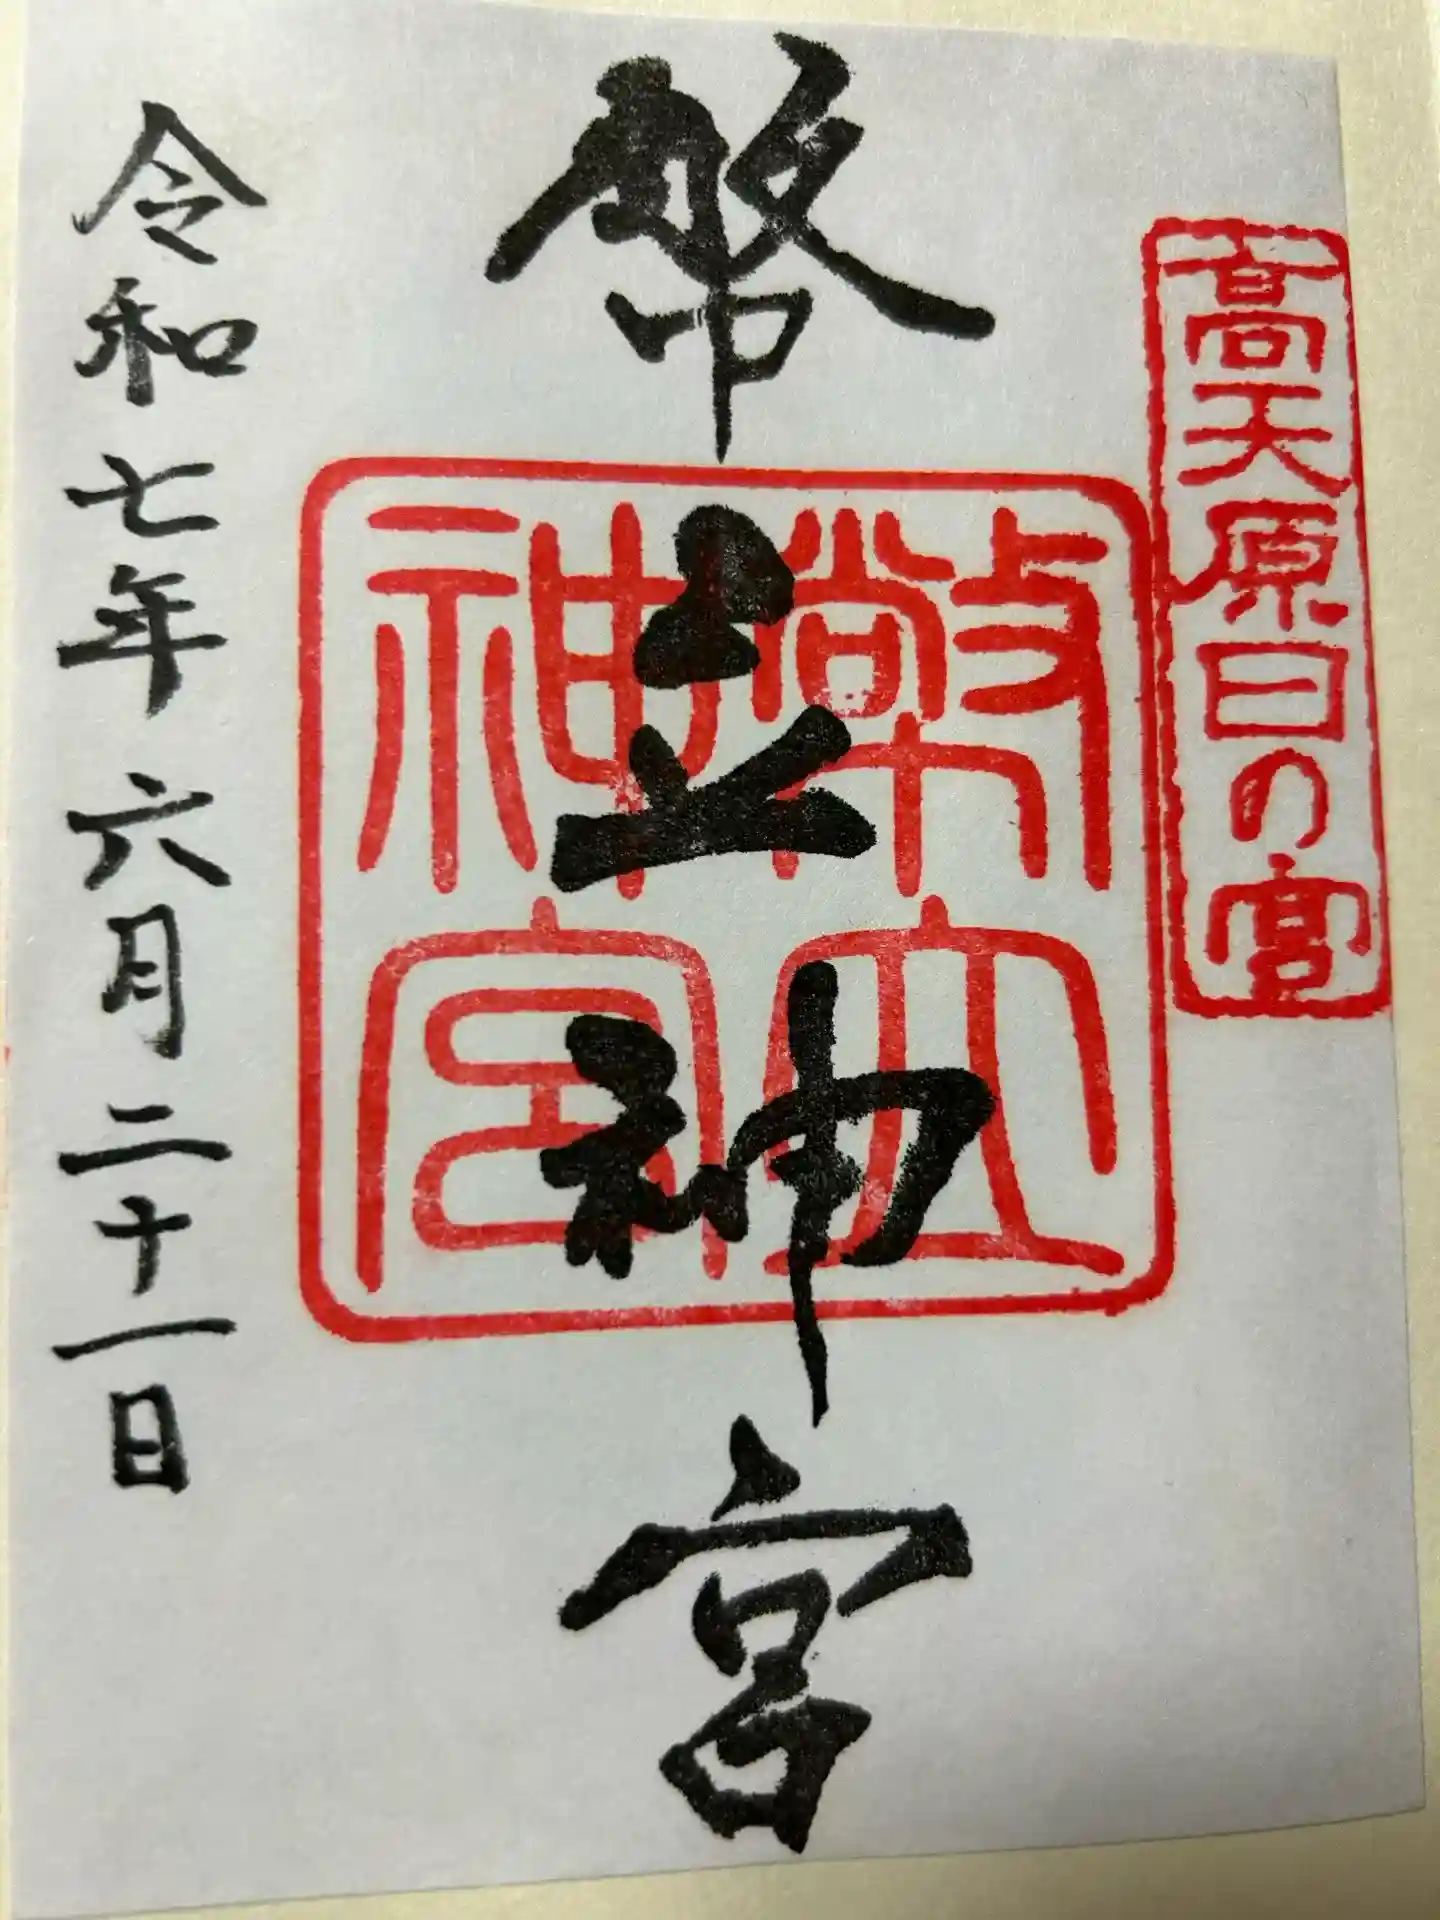 高天原日の宮
幣立神宮
幣立
神宮
令和七年六月二十一日